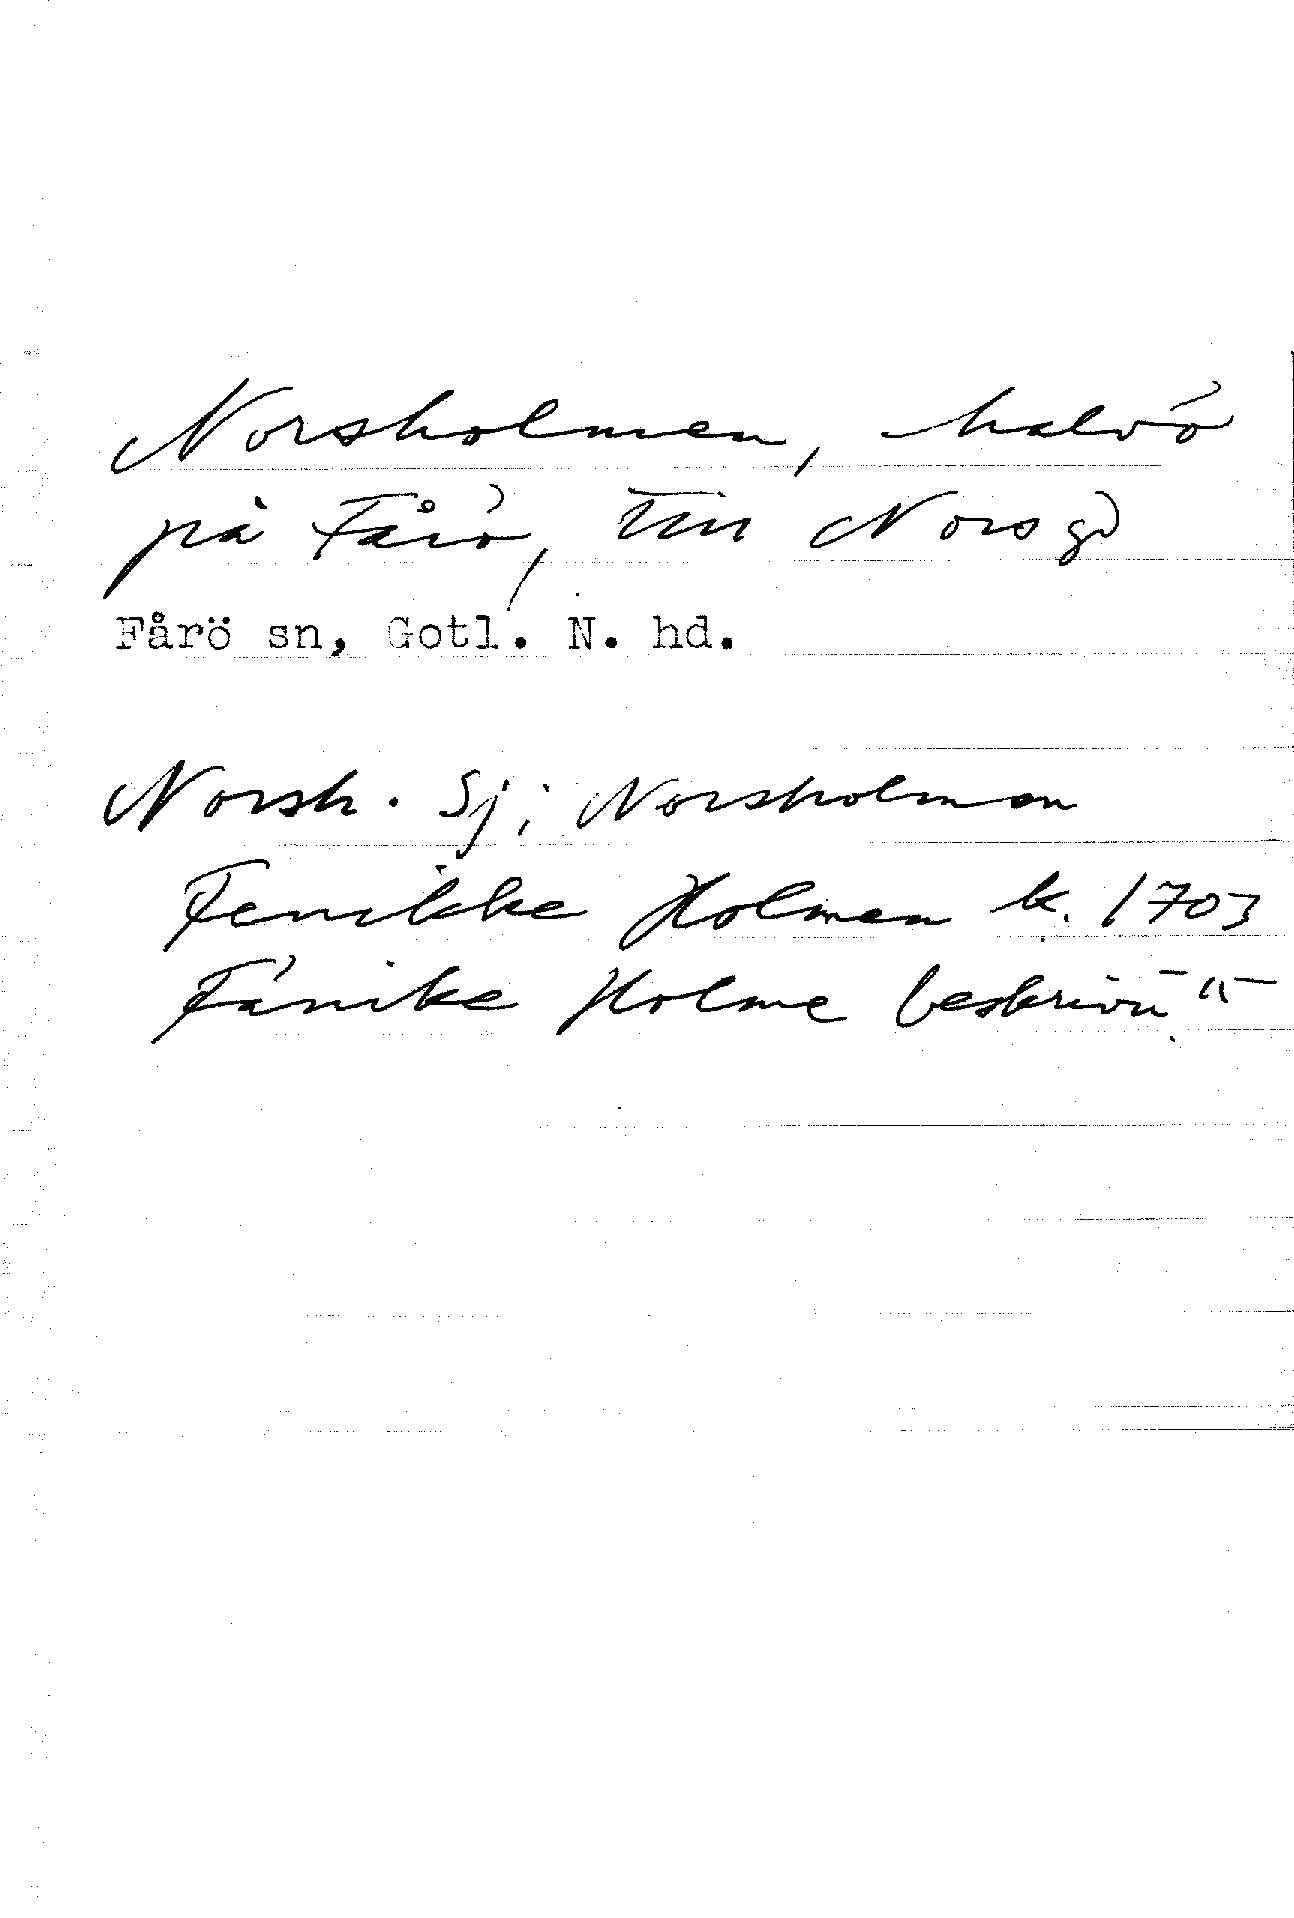 Norsholmen, halvö
på Fårö, till Nors gd
Fårö sn, Gotl. N. hd.
Norsh. Sj; Norsholmen
Fenikke Holmen k. 1703
Fänike Holme beskrivn. "